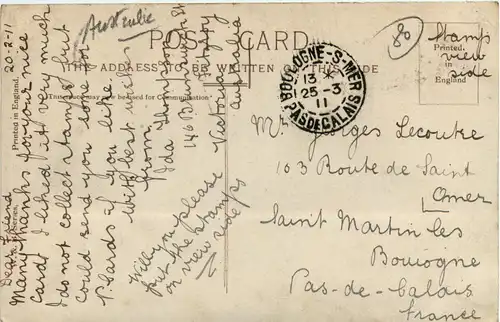 Australie
POST CARD.
THE ADDRESS TO BE WRITTEN ON THIS SIDE
This space may be used for Communication.
Printed in England.
20-2-11
Dear Friend
Many thanks for your nice
card. I liked it very much
I do not collect stamps but
could send you some for
P. Cards if you like.
With best wishes
from,
Ida Thompson
146 Brunswick St
Fitzroy
Victoria
Australia
Will you please
put the stamps
on view side
BOULOGNE-S-MER
13
25-3
11
PAS DE CALAIS
80
Stamps
view
side
Printed
in
England
Mr Georges Lecoutre
103 Route de Saint
Omer
Saint Martin les
Bouiogne
Pas-de-Calais
France